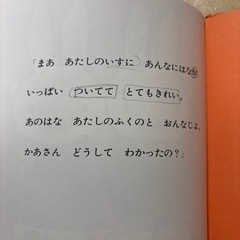 「まあ　あたしのいすに　あんなにはな
いっぱい　ついてて　とてもきれい。
あのはな　あたしのふくのと　おんなじよ。
かあさん　どうして　わかったの？」